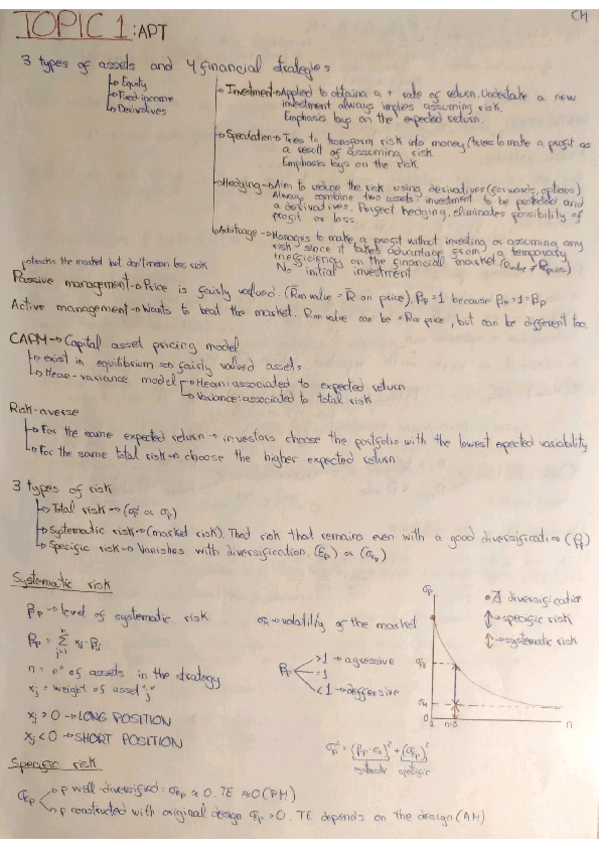 CM
TOPIC 1: APT
3 types of assets and 4 financial strategies
Equity
Fixed-income
Derivatives
Investment → Applied to obtaina a + rate of return. Undertake a new
investment always implies assuming risk.
Emphasis lays on the expected return.
Speculation → Tries to transform risk into money (tries to make a profit as
a result of assuming risk.
Emphasis lays on the risk.
Hedging → Aim to reduce the risk using derivatives (forwards, options)
Always combine two assets: investment to be protected and
a derivatives. Perfect hedging, eliminates possibility of
profit or loss.
Arbitrage → Manages to make a profit without investing or assuming any
risk since it takes advantage from a temporary
inefficiency on the financial market. (R value ≠ R price)
No initial investment
the market but don't mean less risk
Passive management → Price is fairly valued. (R on value = R on price). βp = 1 because βm = 1 = βp
Active management → Wants to beat the market. R on value can be = R on price, but can be different too.
CAPM → Capital asset pricing model
exist in equilibrium → fairly valued assets
Mean-variance model
Mean: associated to expected return
Variance: associated to total risk
Risk-averse
For the same expected return → investors choose the portfolio with the lowest expected variability
For the same total risk → choose the higher expected return
3 types of risk
Total risk → (σp² or σp)
Systematic risk → (market risk). That risk that remains even with a good diversification (βp)
Specific risk → Vanishes with diversification. (Ep) or (σEp)
Systematic risk
βp → level of systematic risk
σm → volatility of the market
βp = Σ xj · βj
n = nº of assets in the strategy
xj = weight of asset "j"
xj > 0 → LONG POSITION
xj < 0 → SHORT POSITION
βp
>1 → agressive
=1
<1 → deffensive
σp
diversification
↕ → specific risk
↕ → systematic risk
σM
0
n
σp² = (βp · σm)² + (σEp)²
specific
Specific risk
σEp
p well-diversified: σEp ≈ 0. TE ≈ 0 (PM)
p constructed with original design σEp > 0. TE depends on the design (AM)